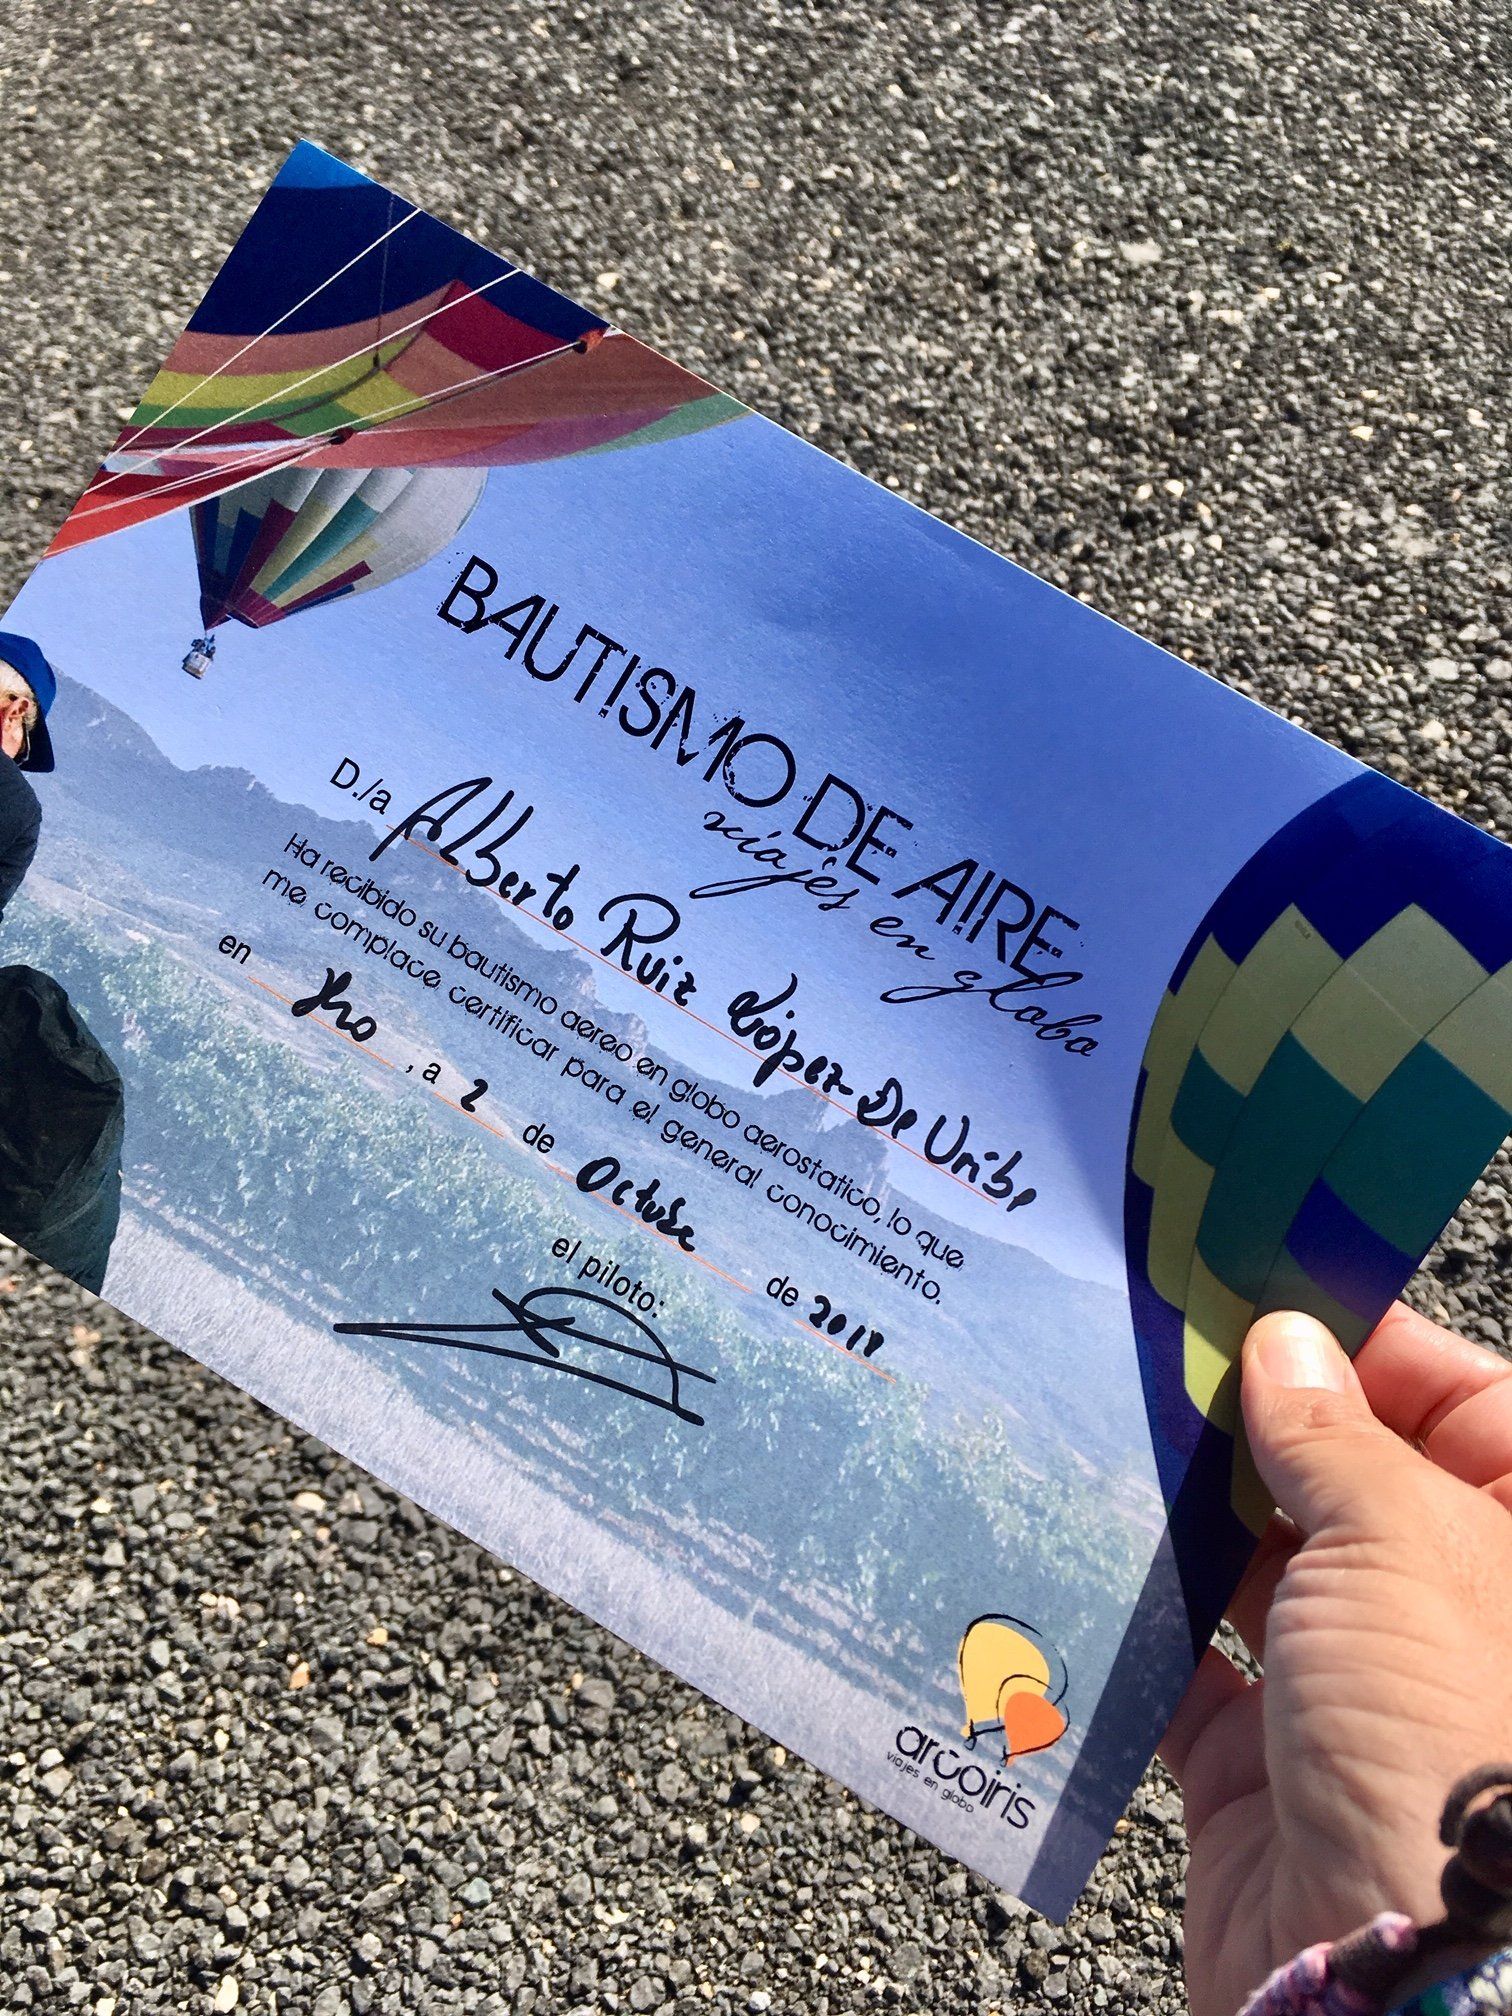 BAUTISMO DE AIRE
viajes en globo
D./a Alberto Ruiz López-De Uribe
Ha recibido su bautismo aereo en globo aerostatico, lo que
me complace certificar para el general conocimiento.
en Haro, a 2 de Octubre de
el piloto:
arcoiris
viajes en globo